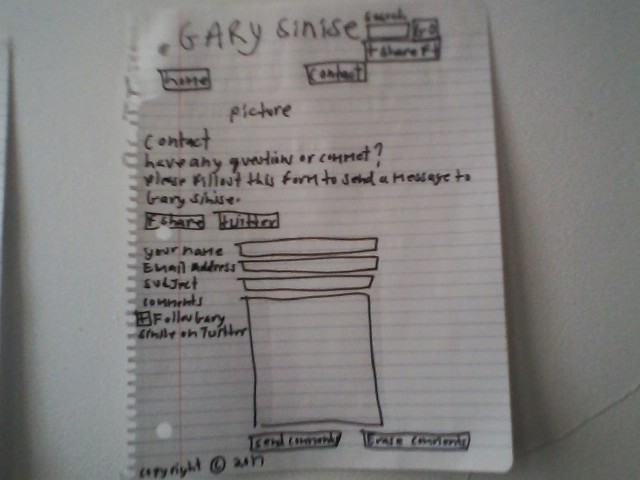 GARY Sinise
search
GO
+ share f t
home
contact
picture
contact
have any questions or commet?
please fill out this form to send a message to
Gary Sinise.
+ share twitter
your name
Email address
subject
comments
+ Follow Gary
sinise on Twitter
send comments Erase comments
copyright ©